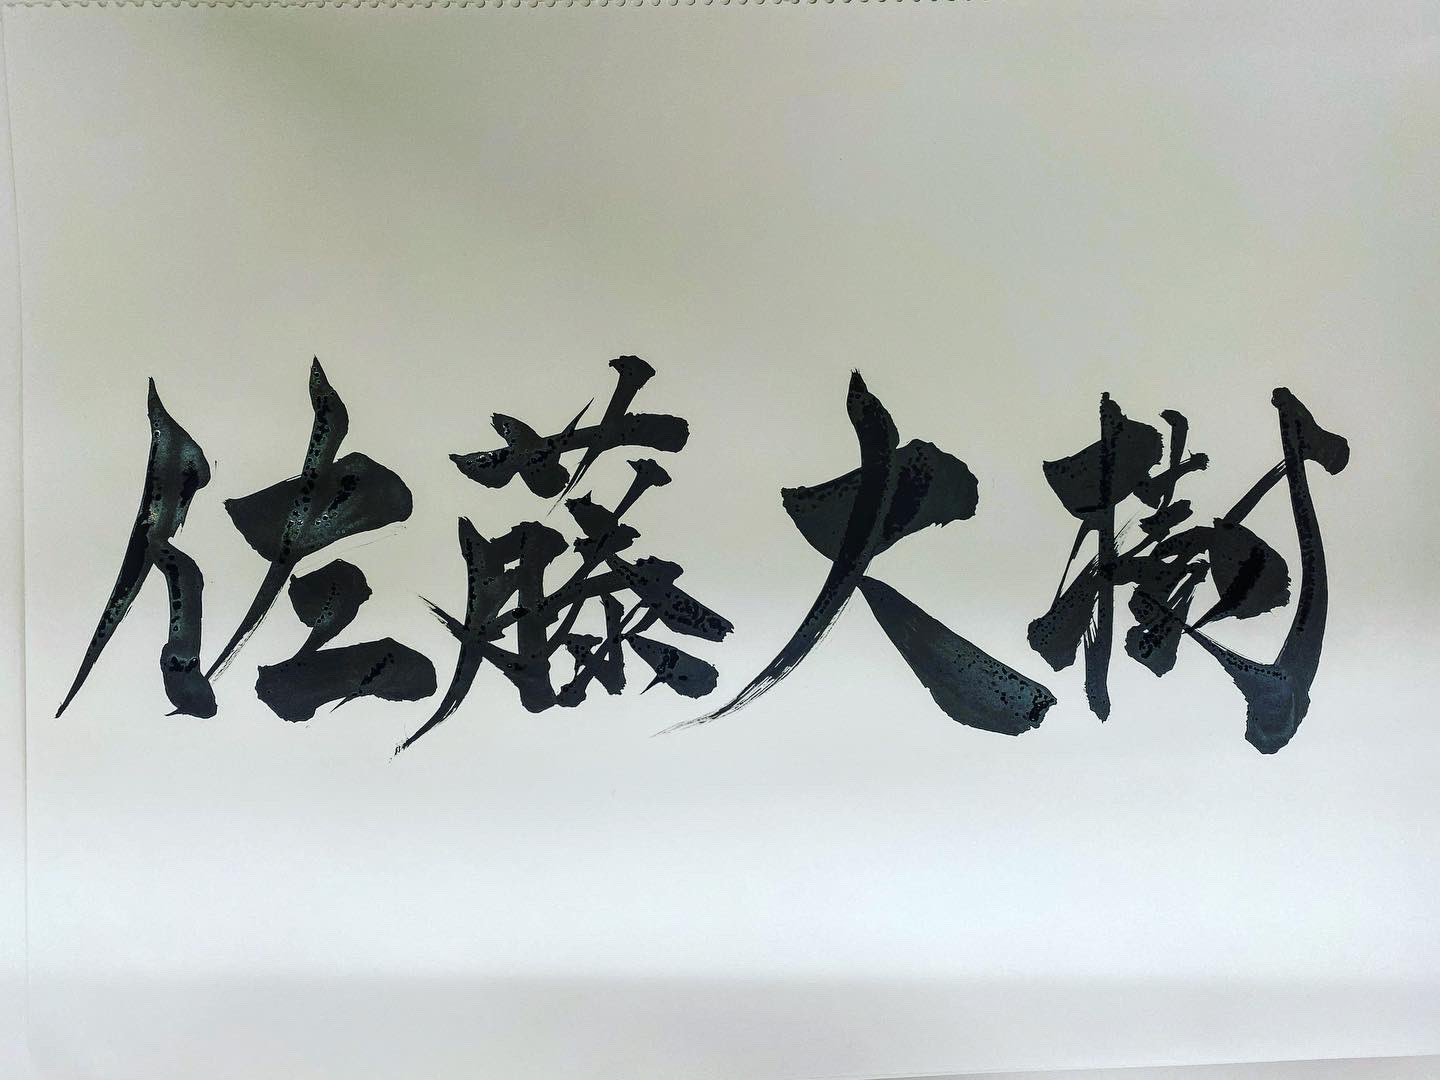 佐藤大樹